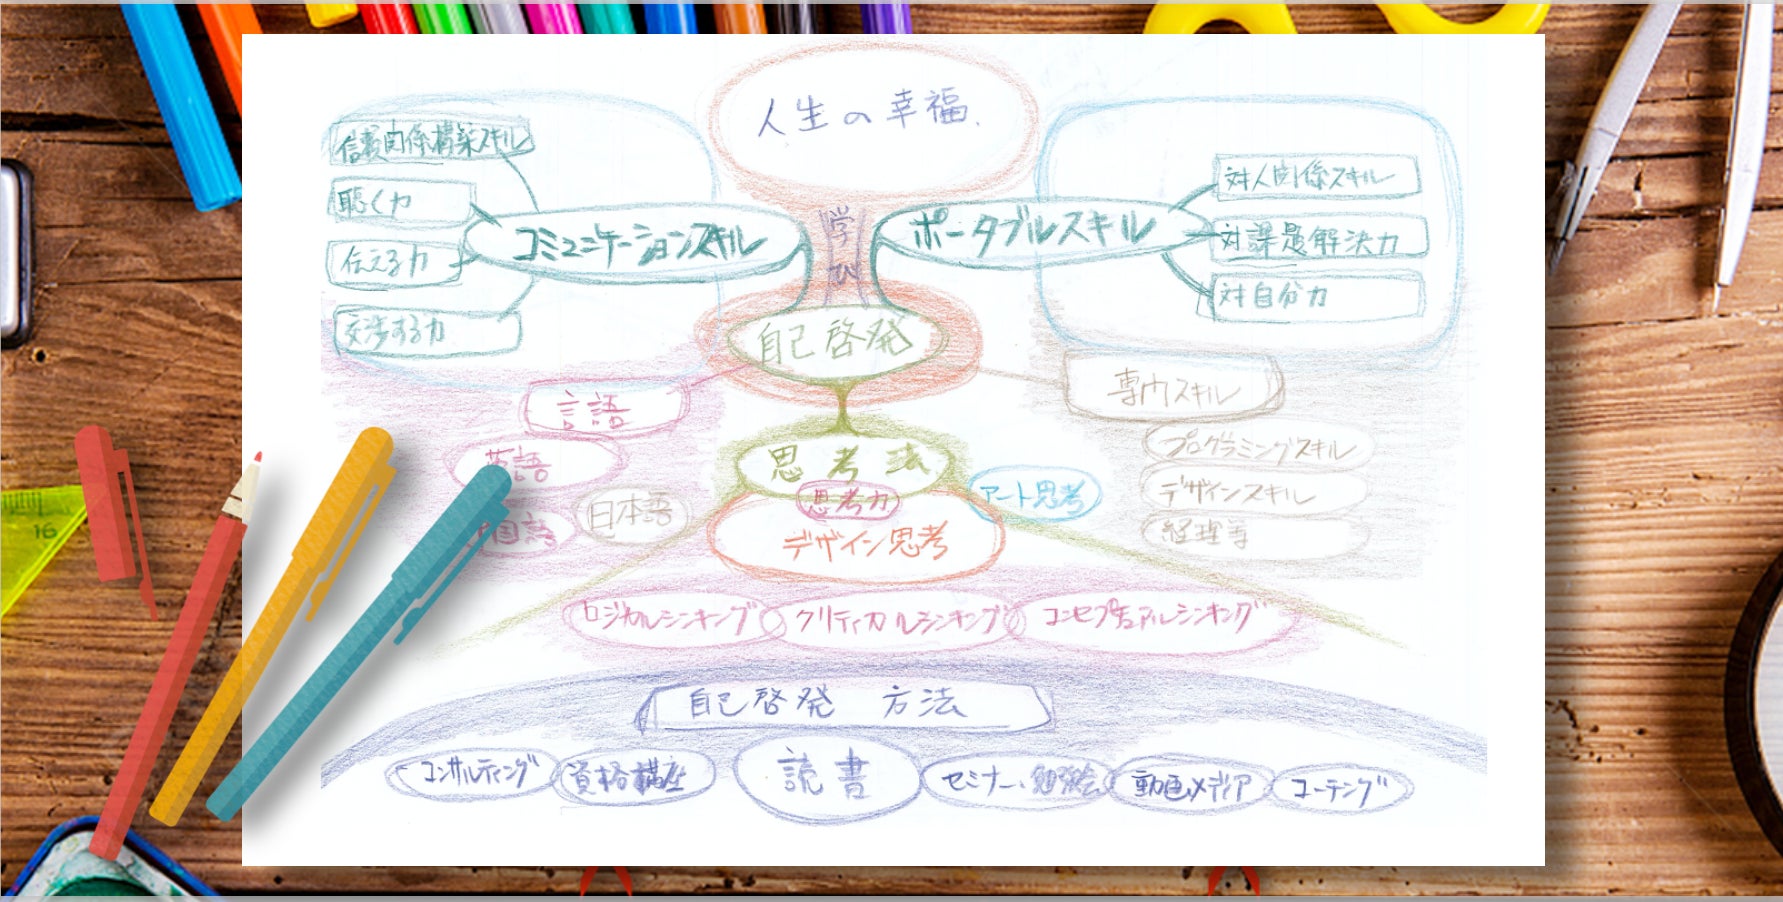 人生の幸福、
学び
信頼関係構築スキル
聴く力
伝える力
交渉する力
コミュニケーションスキル
ポータブルスキル
対人関係スキル
対課題解決力
対自分力
自己啓発
言語
英語
国語
日本語
専門スキル
プログラミングスキル
デザインスキル
経理等
思考法
思考力
デザイン思考
アート思考
ロジカルシンキング
クリティカルシンキング
コンセプチュアルシンキング
自己啓発 方法
コンサルティング
資格講座
読書
セミナー、勉強会
動画メディア
コーチング
16